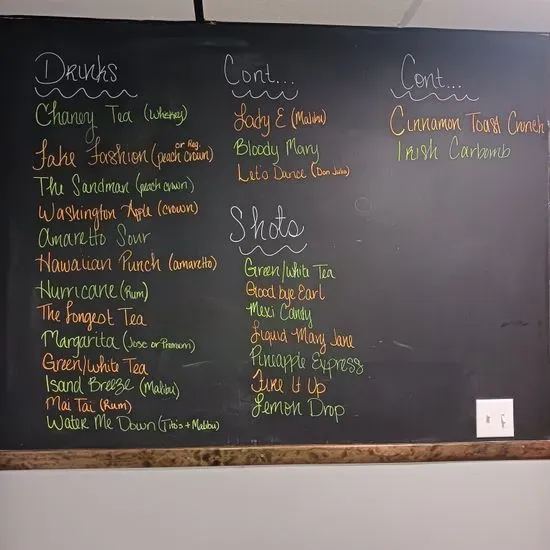 Drinks
Chaney Tea (Whiskey)
or Reg.
Fake Fashion (peach crown)
The Sandman (peach crown)
Washington Apple (crown)
Amaretto Sour
Hawaiian Punch (amaretto)
Hurricane (Rum)
The Longest Tea
Margarita (Jose or Premium)
Green/White Tea
Isand Breeze (Malibu)
Mai Tai (Rum)
Water Me Down (Tito's + Malibu)
Cont...
Lady E (Malibu)
Bloody Mary
Let's Dance (Don Julio)
Shots
Green/White Tea
Good bye Earl
Mexi Candy
Liquid Mary Jane
Pineapple Express
Fire It Up
Lemon Drop
Cont...
Cinnamon Toast Crunch
Irish Carbomb